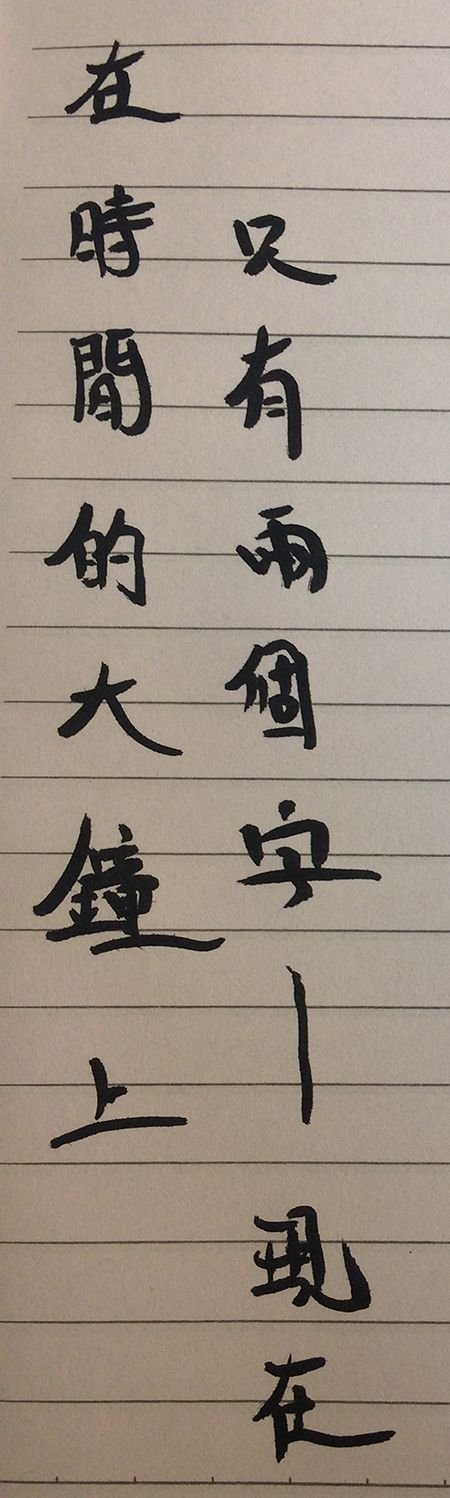 在時間的大鐘上
只有兩個字—現在